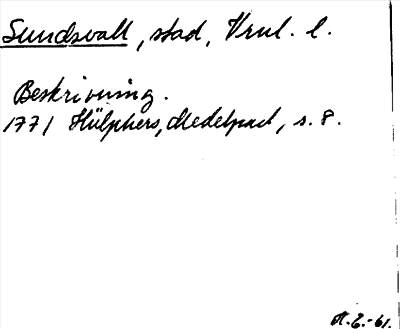 Sundsvall, stad, Vrnl. l.
Beskrivning.
1771 Hülphers, Medelpad, s. 8.
H.E.-61.